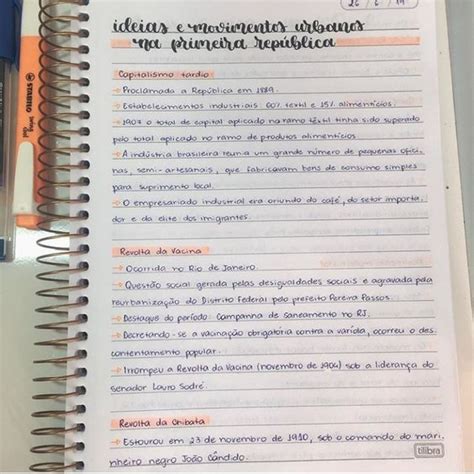 26 / 6 / 19
ideias e movimentos urbanos
na primeira república
Capitalismo tardio
→ Proclamada a República em 1889.
→ Estabelecimentos industriais: 60% têxtil e 15% alimentícios.
→ 1907 o total de capital aplicado no ramo têxtil tinha sido superado
pelo total aplicado no ramo de produtos alimentícios
→ A indústria brasileira reunia um grande número de pequenas ofici
nas, semi-artesanais, que fabricavam bens de consumo simples
para suprimento local.
→ O empresariado industrial era oriundo do café, do setor importa
dor e da elite dos imigrantes.
Revolta da Vacina
→ Ocorrida no Rio de Janeiro.
→ Questão social gerada pelas desigualdades sociais e agravada pela
reurbanização do Distrito Federal pelo prefeito Pereira Passos.
→ Destaque do período: Campanha de Saneamento no RJ.
→ Decretando-se a vacinação obrigatória contra a varíola, ocorreu o des
contentamento popular.
→ Irrompeu a Revolta da Vacina (novembro de 1904) sob a liderança do
senador Lauro Sodré.
Revolta da Chibata
→ Estourou em 23 de novembro de 1910, sob o comando do mari
nheiro negro João Cândido.
tilibra
STABILO